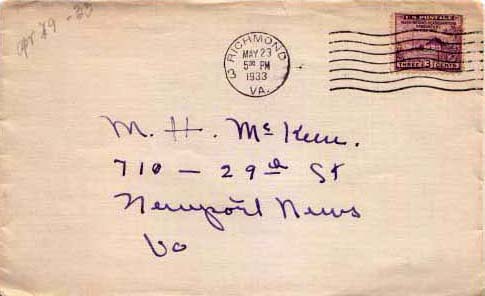 RICHMOND
MAY 23
5 30 PM
1933
VA.
U.S. POSTAGE
THREE 3 CENTS
M. H. McKew.
710 - 29th St
Newport News
Va